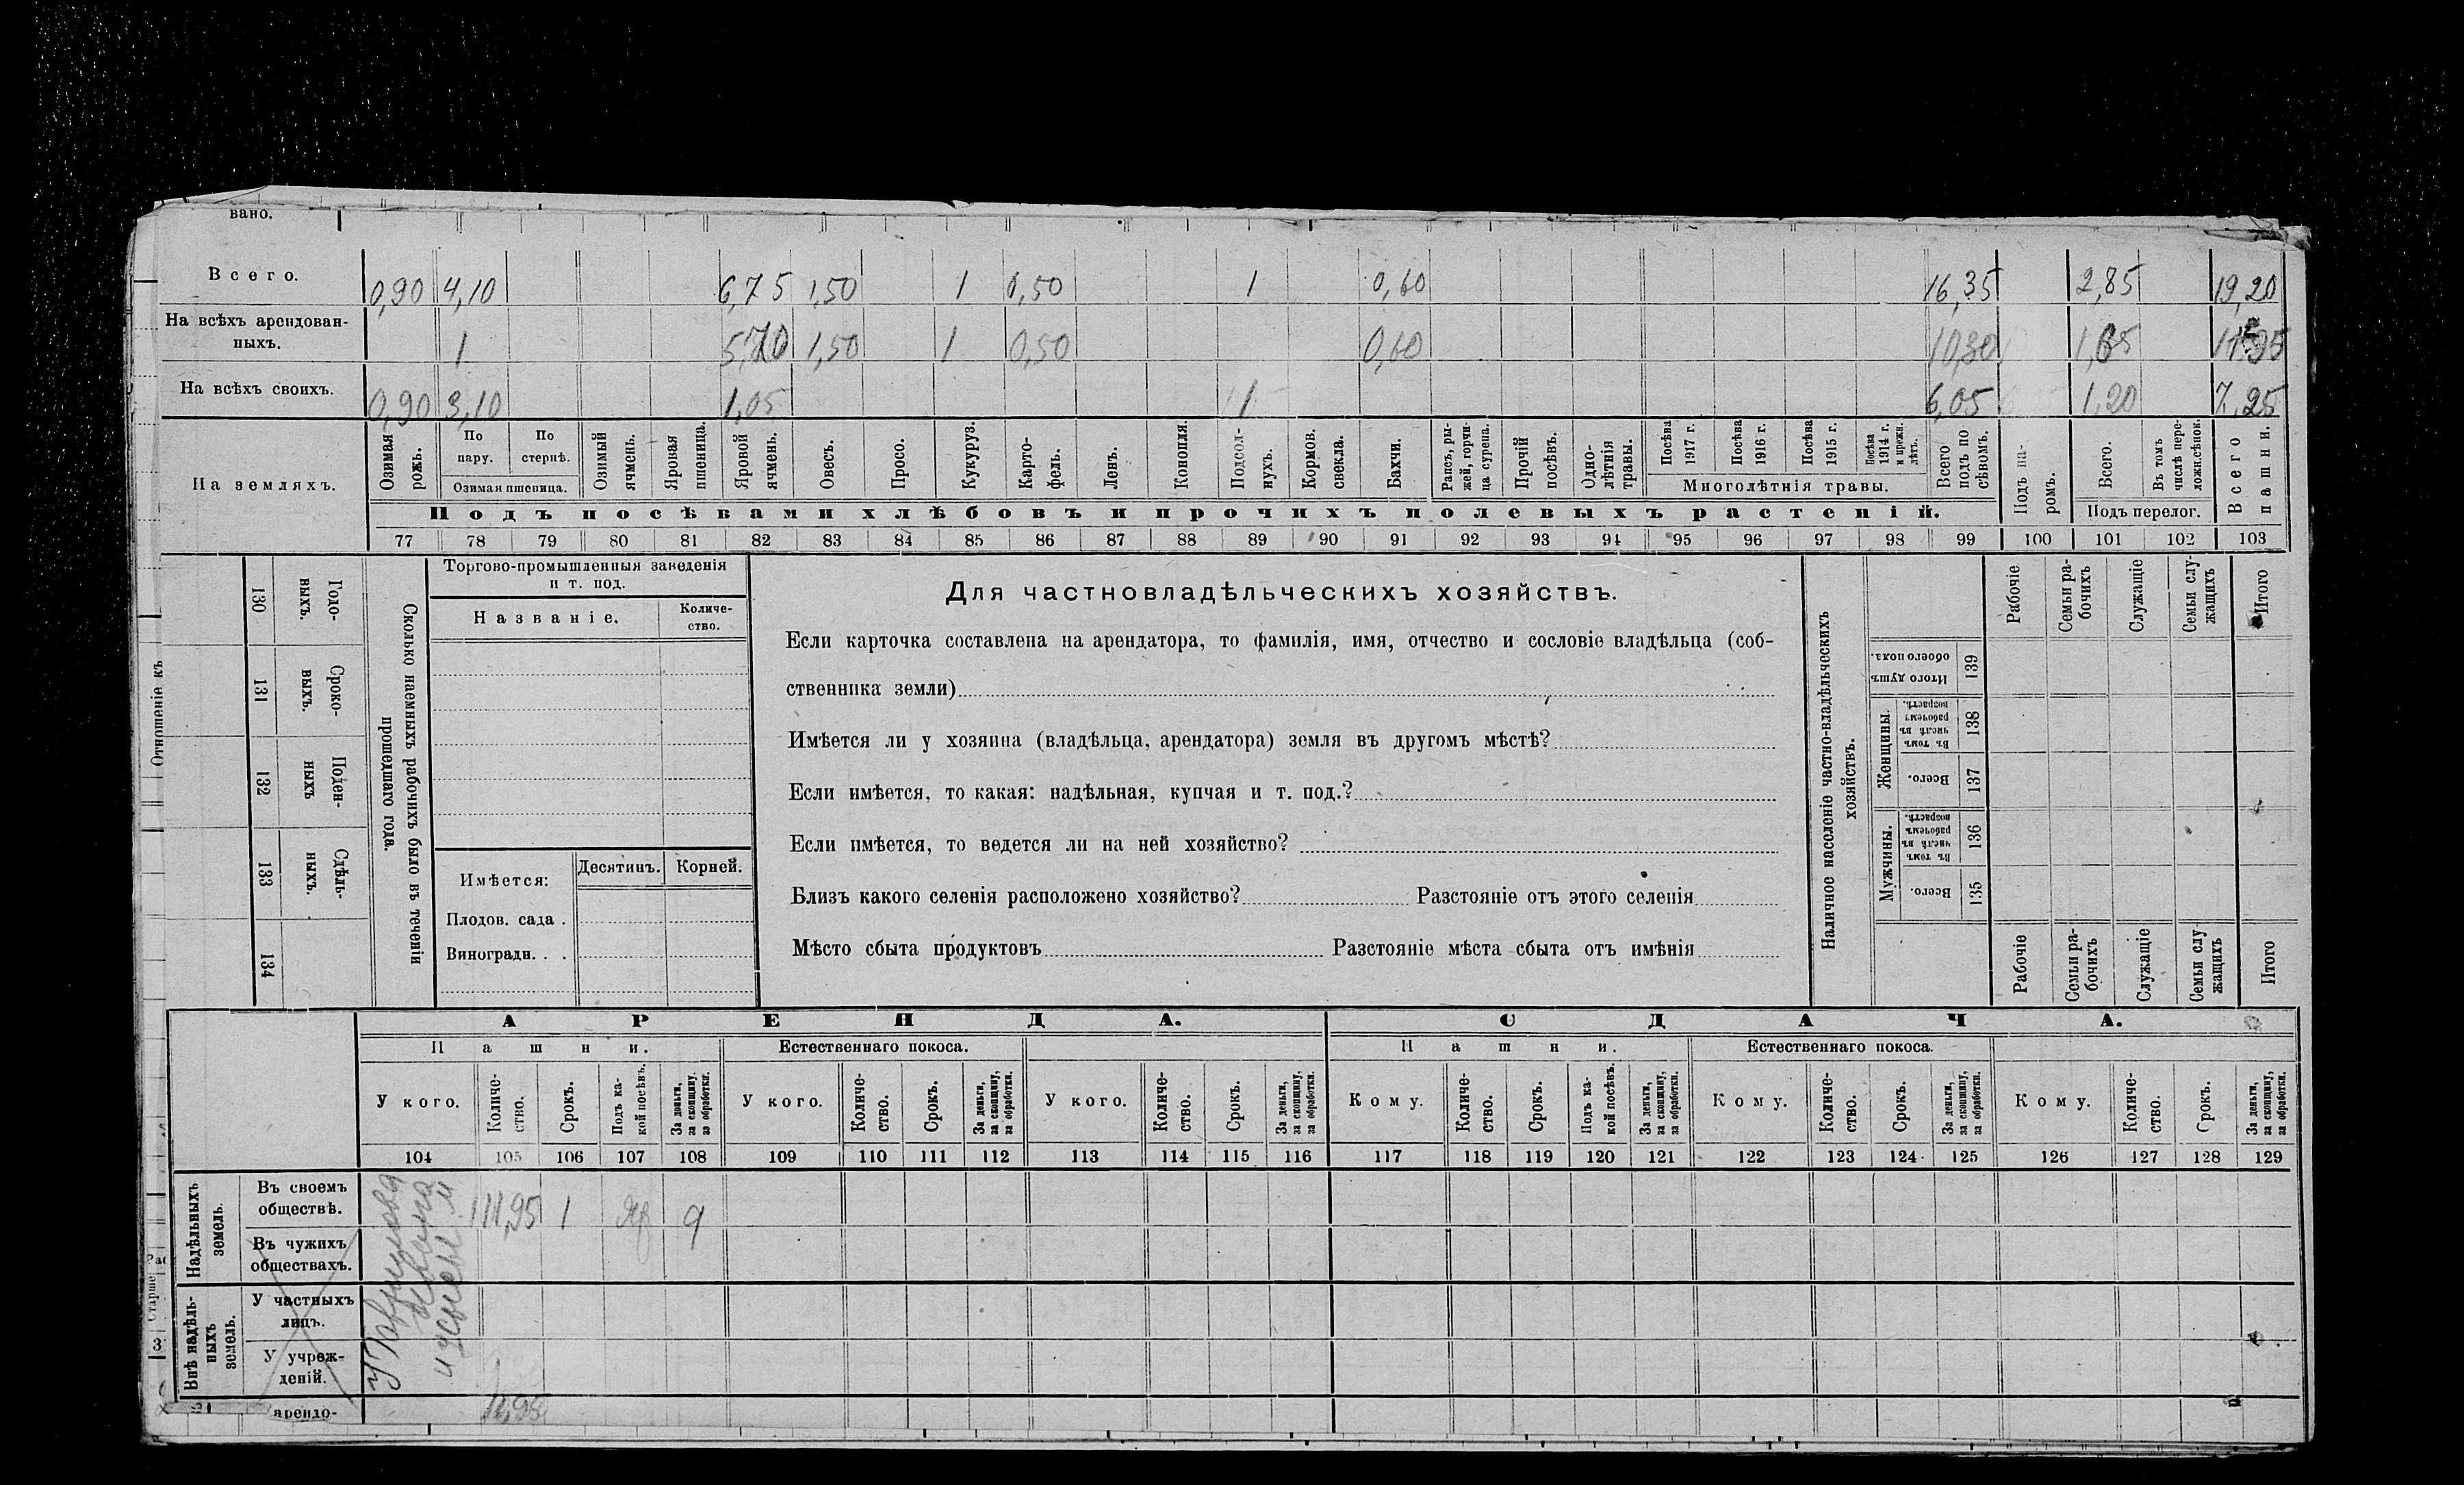 вано.
Всего. 0,90 4,10 6,75 1,50 1 0,50 1 0,60 16,35 2,85 19,20
На всѣхъ арендован-
ныхъ. 1 5,70 1,50 1 0,50 0,60 10,30 1,65 11,95
На всѣхъ своихъ. 0,90 3,10 1,05 1 6,05 1,20 7,25
На земляхъ.
Озимая рожь.
По пару.
По стернѣ.
Озимая пшеница.
Озимый ячмень.
Яровая пшеница.
Яровой ячмень.
Овесъ.
Просо.
Кукуруз.
Карто-
фель.
Ленъ.
Конопля.
Подсол-
нухъ.
Кормов. свекла.
Бахчи.
Рапсъ, ры-
жей, горчи-
ца сурепа.
Прочій посѣвъ.
Одно-
лѣтнія травы.
Посѣва 1917 г.
Посѣва 1916 г.
Посѣва 1915 г.
Посѣва 1914 г. и прежн. лѣтъ.
Многолѣтнія травы.
Всего подъ по сѣвомъ.
Подъ па-
ромъ.
Всего.
Въ томъ числѣ пере-
ложн.сѣнок.
Подъ перелог.
Всего пашни.
Подъ посѣвами хлѣбовъ и прочихъ полевыхъ растеній.
77 78 79 80 81 82 83 84 85 86 87 88 89 90 91 92 93 94 95 96 97 98 99 100 101 102 103
Отношеніе къ
130 Годо-
ныхъ.
131 Сроко-
выхъ.
132 Поден-
ныхъ
133 Сдѣль-
ныхъ.
134
Сколько наемныхъ рабочихъ было въ теченіи
прошедшаго года.
Торгово-промышленныя заведенія
и т. под.
Названіе.
Количе-
ство.
Имѣется:
Десятинъ.
Корней.
Плодов. сада .
Виноградн. . .
Для частновладѣльческихъ хозяйствъ.
Если карточка составлена на арендатора, то фамилія, имя, отчество и сословіе владѣльца (соб-
ственника земли)
Имѣется ли у хозяина (владѣльца, арендатора) земля въ другомъ мѣстѣ?
Если имѣется, то какая: надѣльная, купчая и т. под.?
Если имѣется, то ведется ли на ней хозяйство?
Близъ какого селенія расположено хозяйство? Разстояніе отъ этого селенія
Мѣсто сбыта продуктовъ Разстояніе мѣста сбыта отъ имѣнія
Наличное населеніе частно-владѣльческихъ
хозяйствъ.
Рабочіе
Семьи ра-
бочихъ
Служащіе
Семьи слу-
жащихъ
Итого
Итого душъ обоего пола. 139
Женщины.
Въ томъ числѣ въ рабочемъ возрастѣ. 138
Всего. 137
Мужчины.
Въ томъ числѣ въ рабочемъ возрастѣ. 136
Всего. 135
Рабочіе
Семьи ра-
бочихъ
Служащіе
Семьи слу-
жащихъ
Итого
АРЕНДА. СДАЧА.
Пашни. Естественнаго покоса. Пашни. Естественнаго покоса.
У кого.
Количе-
ство.
Срокъ.
Подъ ка-
кой посѣвъ.
За деньги, за скопщину, за обработки.
У кого.
Количе-
ство.
Срокъ.
За деньги, за скопщину, за обработки.
У кого.
Количе-
ство.
Срокъ.
За деньги, за скопщину, за обработки.
Кому.
Количе-
ство.
Срокъ.
Подъ ка-
кой посѣвъ.
За деньги, за скопщину, за обработки.
Кому.
Количе-
ство.
Срокъ.
За деньги, за скопщину, за обработки.
Кому.
Количе-
ство.
Срокъ.
За деньги, за скопщину, за обработки.
104 105 106 107 108 109 110 111 112 113 114 115 116 117 118 119 120 121 122 123 124 125 126 127 128 129
Надѣльныхъ
земель.
Въ своемъ
обществѣ. 11,95 1 9
Въ чужихъ
обществахъ.
Внѣ надѣль-
ныхъ
земель.
У частныхъ
лицъ.
У учреж-
деній.
арендо- 11,95
Старше
3